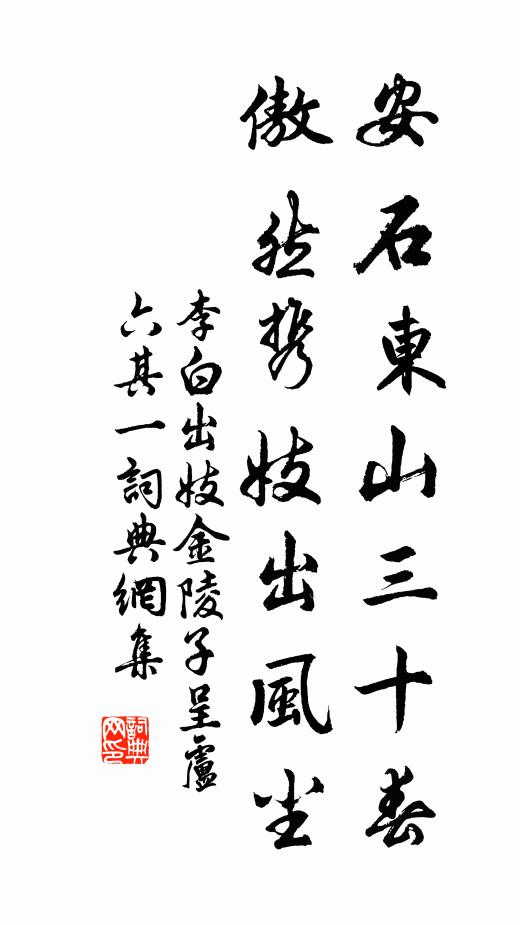 安石東山三十春
傲然攜妓出風尘
李白出妓金陵子呈盧
六其一詞典網集
詞典
网印